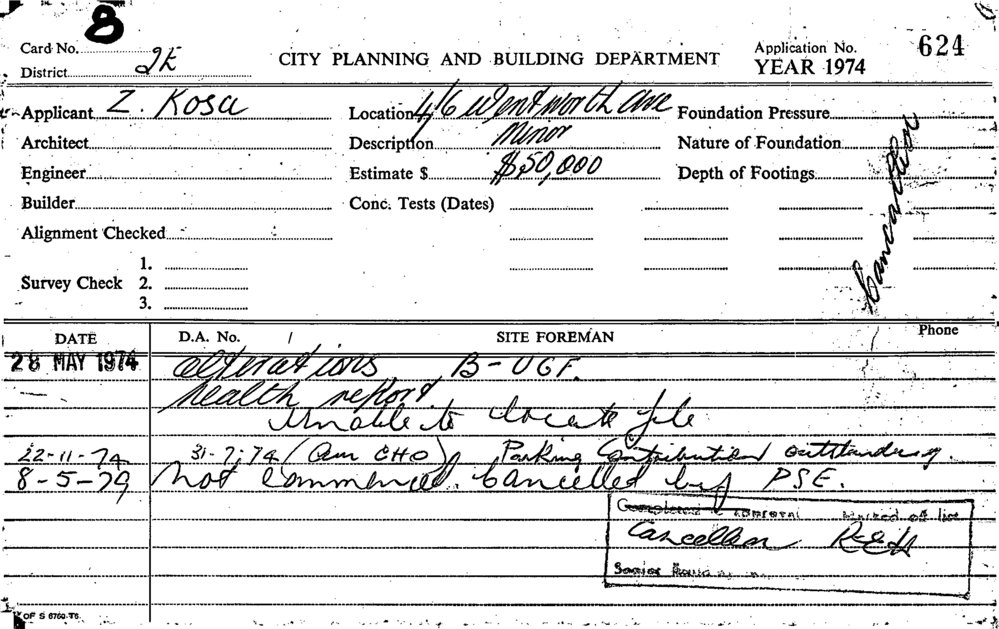 8
Card No.
District 2E
CITY PLANNING AND BUILDING DEPARTMENT
Application No. 624
YEAR 1974
Applicant Z. Kosa
Location 4/6 Wentworth Ave
Foundation Pressure
Architect
Description Minor
Nature of Foundation
Engineer
Estimate $ $50,000
Depth of Footings
Builder
Conc. Tests (Dates)
Alignment Checked
Survey Check
1.
2.
3.
Cancellen
DATE
D.A. No. /
SITE FOREMAN
Phone
28 MAY 1974
alterations B-UGF.
health report
Unable to locate file
22-11-74 31-7-74 (Am CHO) Parking Contribution outstanding.
8-5-79 Not commenced. Cancelled by PSE.
Completed
off list
Cancellen
Senior